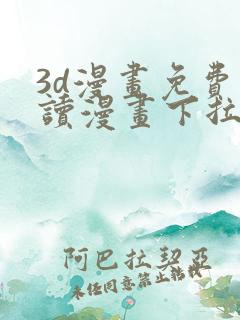 3d漫畫免費
讀漫畫下拉
阿巴拉契亞
未经同意禁止转载